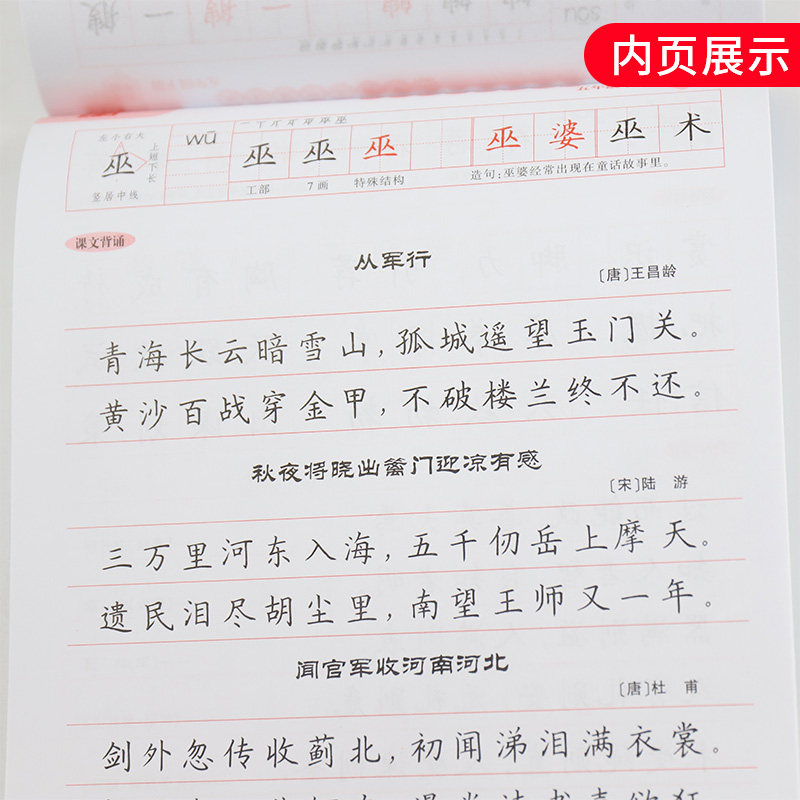 内页展示
左小右大
巫
上短下长
竖居中线
wū
巫 巫 巫 巫 婆 巫 术
工部 7画 特殊结构 造句:巫婆经常出现在童话故事里。
课文背诵
从军行
〔唐〕王昌龄
青海长云暗雪山,孤城遥望玉门关。
黄沙百战穿金甲,不破楼兰终不还。
秋夜将晓出篱门迎凉有感
〔宋〕陆 游
三万里河东入海,五千仞岳上摩天。
遗民泪尽胡尘里,南望王师又一年。
闻官军收河南河北
〔唐〕杜 甫
剑外忽传收蓟北,初闻涕泪满衣裳。